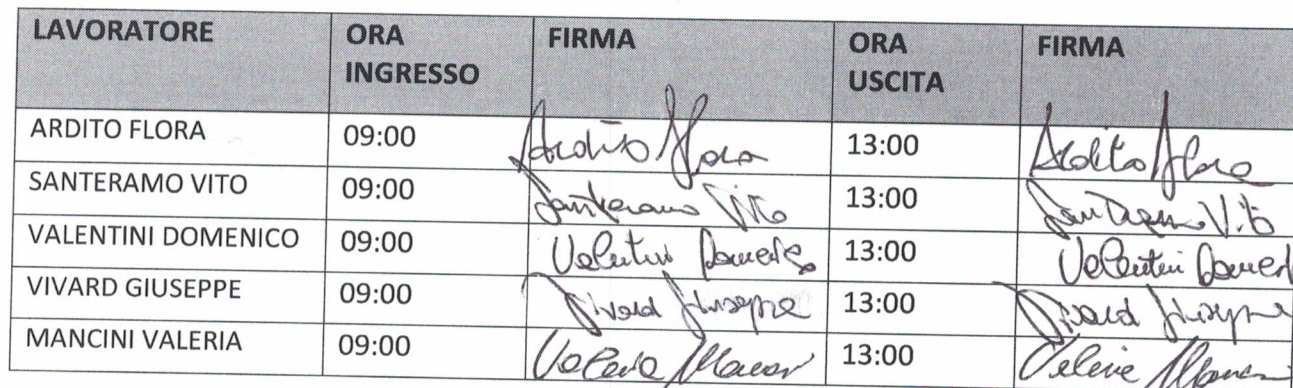 LAVORATORE ORA INGRESSO FIRMA ORA USCITA FIRMA
ARDITO FLORA 09:00 Ardito Flora 13:00 Ardito Flora
SANTERAMO VITO 09:00 Santeramo Vito 13:00 Santeramo Vito
VALENTINI DOMENICO 09:00 Valentini Domenico 13:00 Valentini
VIVARD GIUSEPPE 09:00 Vivard Giuseppe 13:00 Vivard Giuseppe
MANCINI VALERIA 09:00 Valeria Mancini 13:00 Valeria Mancini